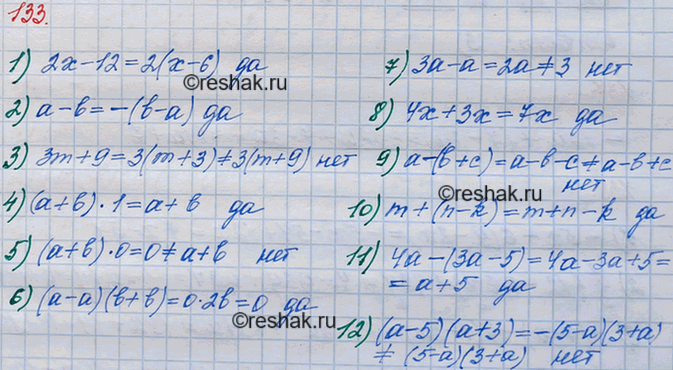 133.
1) 2x-12=2(x-6) да
©reshak.ru
2) a-b=-(b-a) да
3) 3m+9=3(m+3)≠3(m+9) нет
4) (a+b)·1=a+b да
5) (a+b)·0=0≠a+b нет
6) (a-a)(b+b)=0·2b=0 да
©reshak.ru
7) 3a-a=2a≠3 нет
8) 4x+3x=7x да
9) a-(b+c)=a-b-c≠a-b+c
нет
©reshak.ru
10) m+(n-k)=m+n-k да
11) 4a-(3a-5)=4a-3a+5=
=a+5 да
12) (a-5)(a+3)=-(5-a)(3+a)
≠(5-a)(3+a) нет